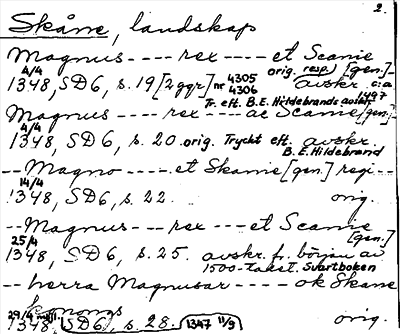 2.
Skåne, landskap
Magnus ---- rex ---- et Scanie [gen.]
4/4 orig. resp.
1348, SD6, s. 19 [2 ggr] nr 4305 4306 avskr. c:a 1497
Tr. eft. B.E. Hildebrands avskr.
Magnus ---- rex ---- ac Scanie [gen.]
4/4
1348, SD6, s. 20. orig. Tryckt eft. avskr. B.E. Hildebrand
-- Magno ---- et Skanie [gen.] regi --
14/4
1348, SD6, s. 22. orig.
-- Magnus --- rex --- et Scanie [gen.]
25/4
1348, SD6, s. 25. avskr. fr. början av 1500-talet. Svartboken
-- herra Magnusar ---- ok Skane
konongs
1348, SD6, s. 28. 1347 11/9 orig.